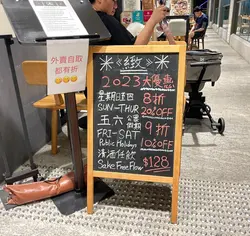 外賣自取
都有折
*《緻》*
2023大優惠
星期日至四 8折
SUN-THUR 20% OFF
五六 公眾假期 9折
FRI-SAT 10% OFF
Public Holidays
清酒任飲 $128
Sake Free Flow